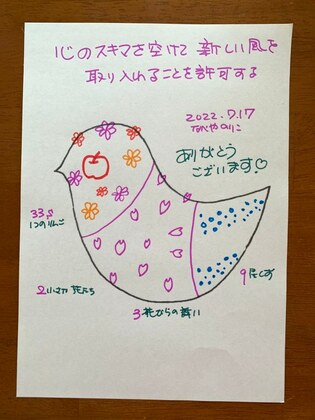 心のスキマを空けて 新しい風を
取り入れることを許可する
2022.7.17
なべやのりこ
ありがとう
ございます♡
33,8
1つのりんご
2いさな 花たち
3花からの舞い
9しずく